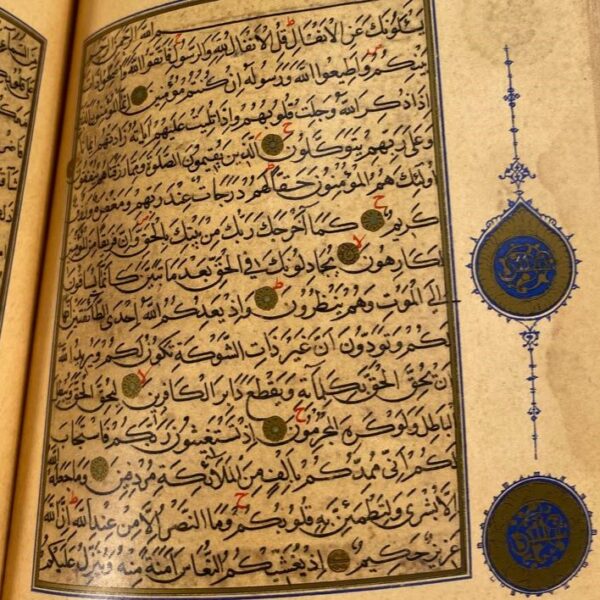 بسم الله الرحمن الرحيم
يسئلونك عن الانفال قل الانفال لله والرسول فاتقوا الله واصلحوا ذات
بينكم واطيعوا الله ورسوله ان كنتم مؤمنين انما المؤمنون الذين
اذا ذكر الله وجلت قلوبهم واذا تليت عليهم اياته زادتهم ايمانا
وعلى ربهم يتوكلون الذين يقيمون الصلوة ومما رزقناهم ينفقون
اولئك هم المؤمنون حقا لهم درجات عند ربهم ومغفرة ورزق
كريم كما اخرجك ربك من بيتك بالحق وان فريقا من المؤمنين
لكارهون يجادلونك في الحق بعد ما تبين كانما يساقون
الى الموت وهم ينظرون واذ يعدكم الله احدى الطائفتين انها
لكم وتودون ان غير ذات الشوكة تكون لكم ويريد الله
ان يحق الحق بكلماته ويقطع دابر الكافرين ليحق الحق ويبطل
الباطل ولو كره المجرمون اذ تستغيثون ربكم فاستجاب
لكم اني ممدكم بالف من الملائكة مردفين وما جعله الله
الا بشرى ولتطمئن به قلوبكم وما النصر الا من عند الله ان الله
عزيز حكيم اذ يغشيكم النعاس امنة منه وينزل عليكم